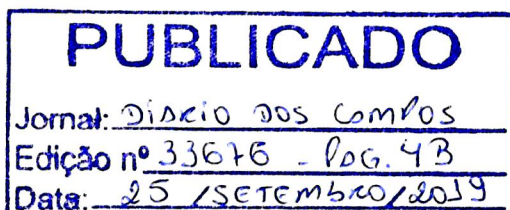 PUBLICADO
Jornal: DIÁRIO DOS CAMPOS
Edição nº 33676 - PÁG. 4B
Data: 25 / SETEMBRO / 2019